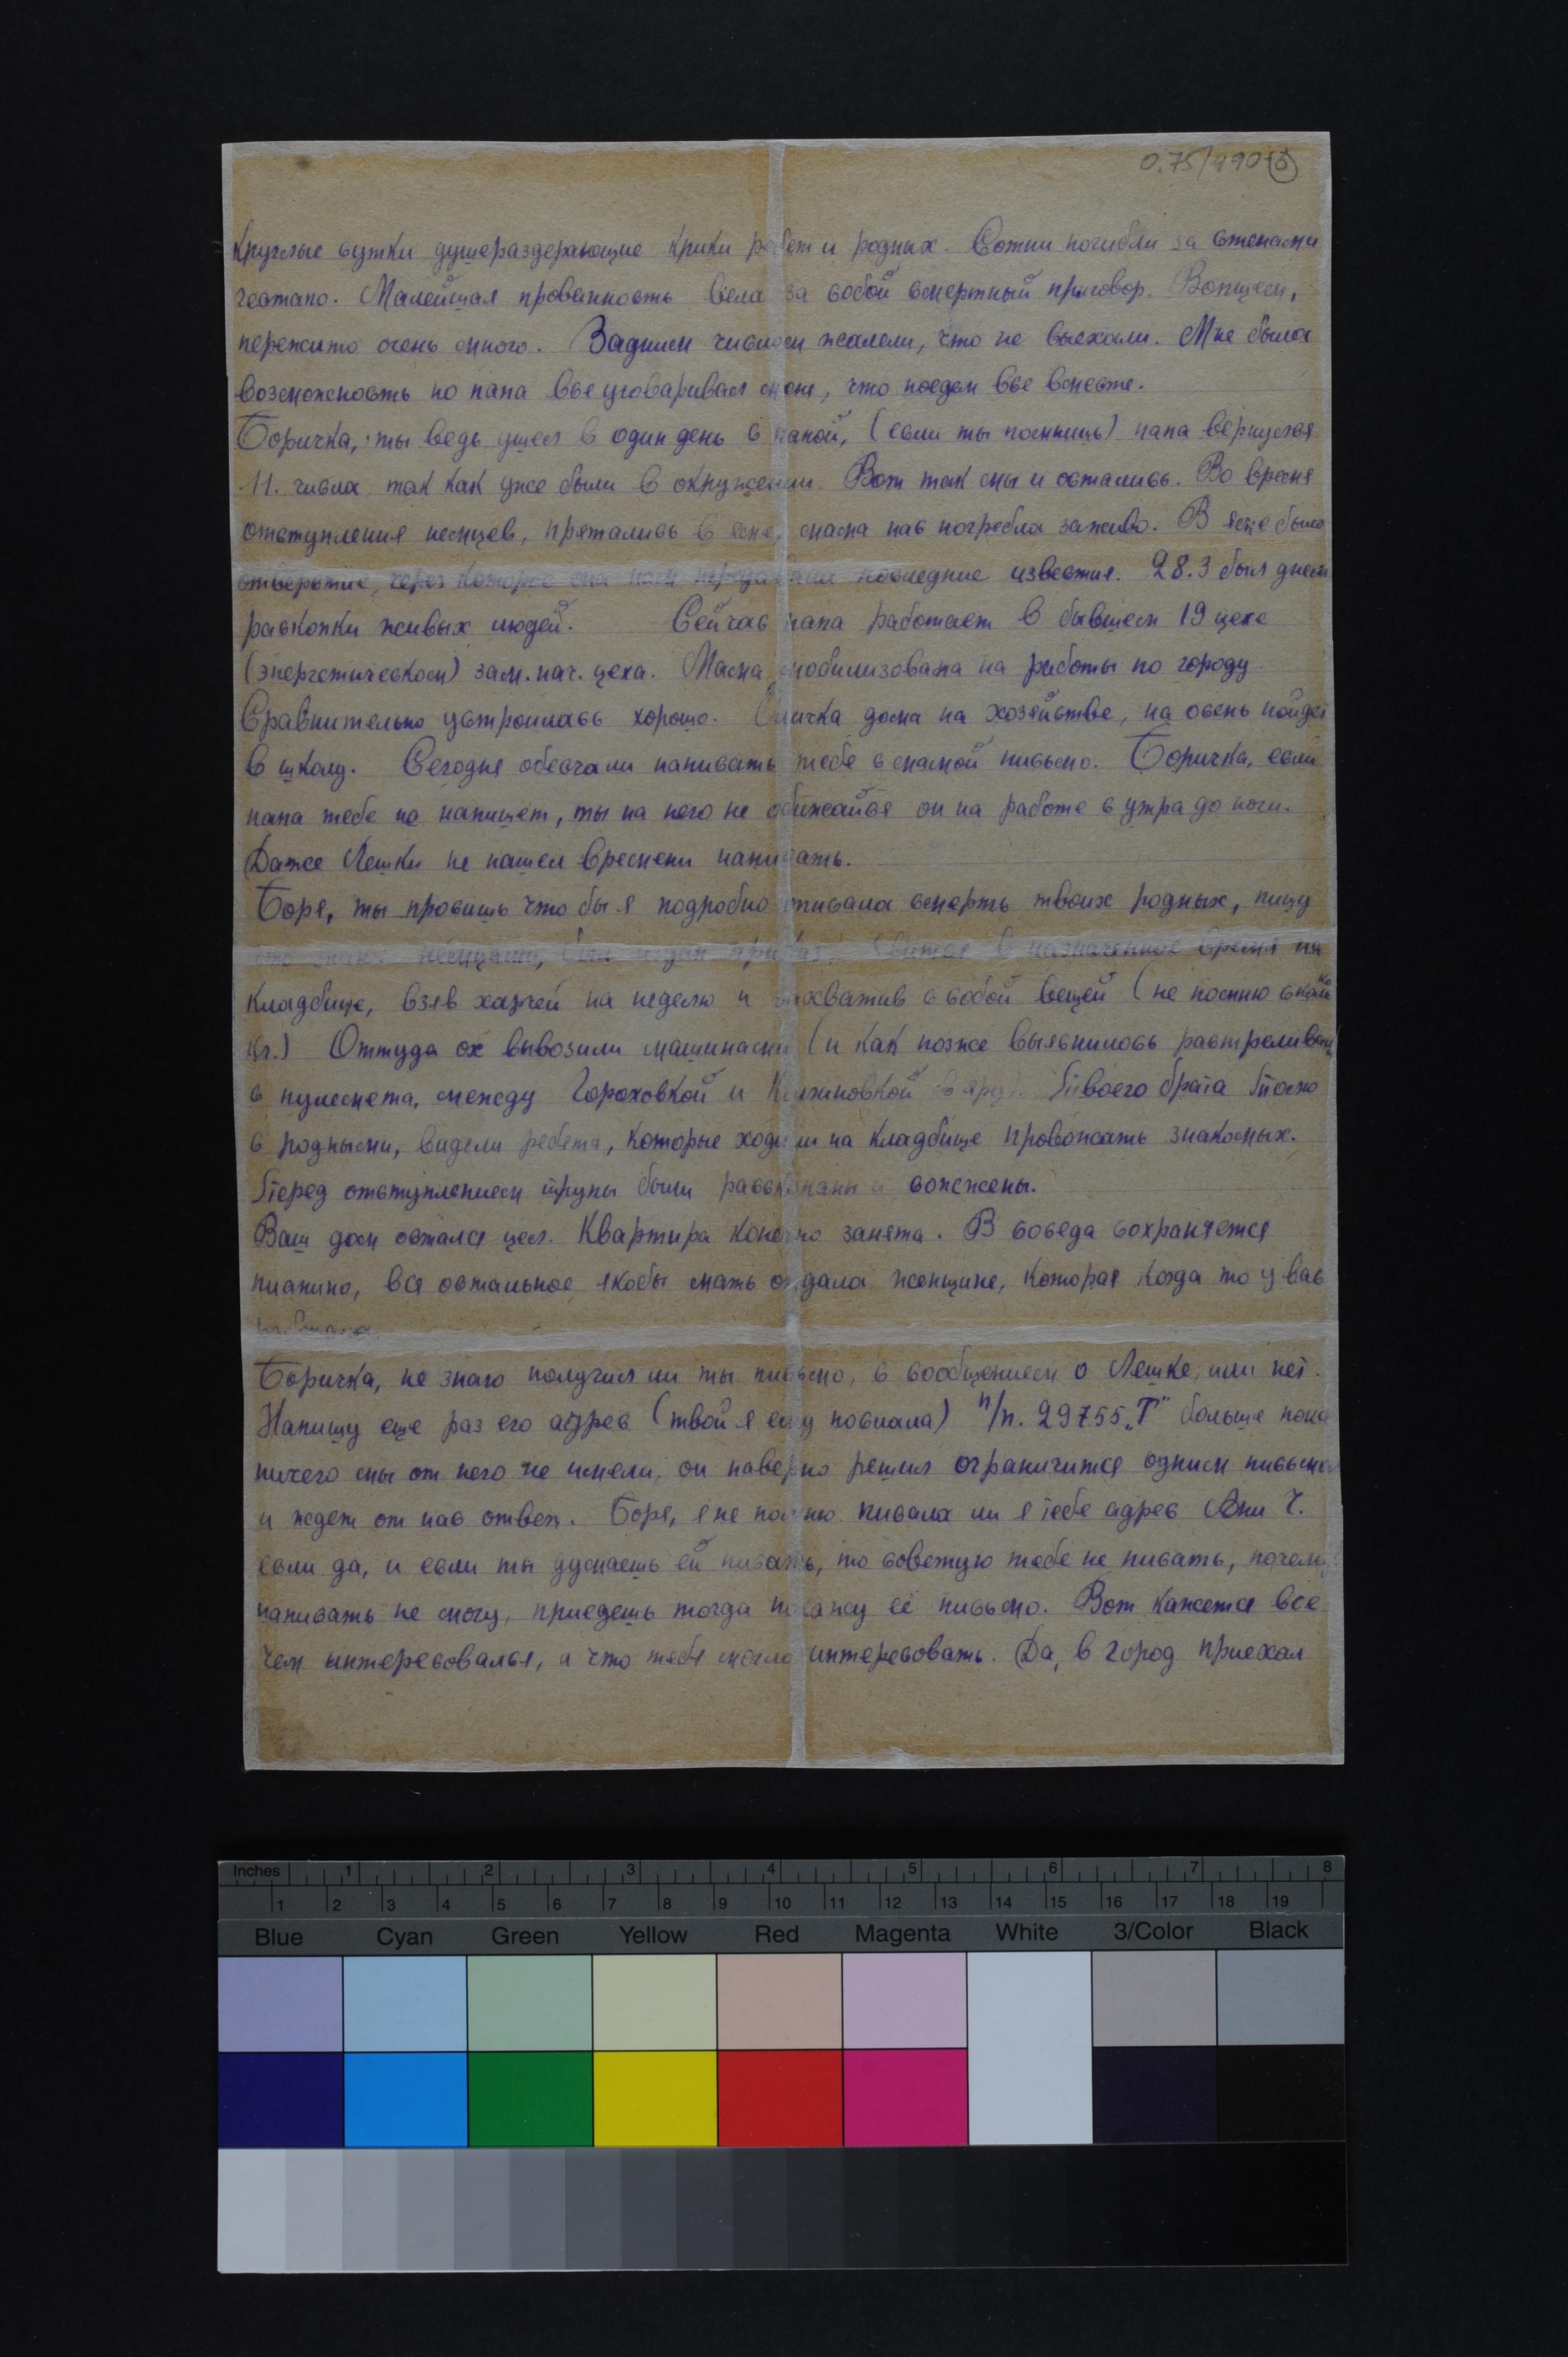 0.75/490-6
Круглые сутки душераздерающие крики ребят и родных. Сотни погибли за стенами
гестапо. Малейшая провинность вела за собой смертный приговор. Вопщем,
пережито очень много. Задним числом жалели, что не выехали. Мне была
возможность но папа все уговаривал меня, что поедем все вместе.
Боричка, ты ведь ушел в один день с папой, (если ты помнишь) папа вернулся
11. числа, так как уже были в окружении. Вот так мы и остались. Во время
отступления немцев, прятались в яме, мама нас погребла заживо. В яме было
отверстие, через которое она нам передавала последние известия. 28.3 был днем
раскопки живых людей. Сейчас папа работает в бывшем 19 цехе
(энергетическом) зам. нач. цеха. Мама мобилизована на работы по городу.
Сравнительно устроилась хорошо. дома на хозяйстве, на осень пойдет
в школу. Сегодня обесчали написать тебе с мамой письмо. Боричка, если
папа тебе не напишет, ты на него не обижайся он на работе с утра до ночи.
Даже Лешки не нашел времени написать.
Боря, ты просишь что бы я подробно описала смерть твоих родных, пишу
что знаю. Немцами, был издан приказ, явится в назначенное время на
кладбище, взяв харчей на неделю и захватив с собой вещей (не помню сколько
кг.) Оттуда ох вывозили машинами (и как позже выяснилось растреливали
с пулемета, между Гороховкой и в яру). Твоего брата
с родными, видели ребята, которые ходили на кладбище провожать знакомых.
Перед отступлением трупы были раскопаны и сожжены.
Ваш дом остался цел. Квартира конечно занята. В соседа сохраняется
пианино, все остальное, якобы мать отдала женщине, которая когда то у вас
работала.
Боричка, не знаю получил ли ты письмо, с сообщением о Лешке, или нет.
Напишу еще раз его адрес (твой я ему послала) п/п. 29755 „Т" больше пока
ничего мы от него не имели, он наверно решил ограничится одним письмом
и ждет от нас ответ. Боря, я не помню писала ли я тебе адрес Ани Ч.
если да, и если ты думаешь ей писать, то советую тебе не писать, почему
написать не могу, приедешь тогда покажу её письмо. Вот кажется все
чем интересовался, и что тебя могло интересовать. Да, в город приехал
Inches 1 2 3 4 5 6 7 8
1 2 3 4 5 6 7 8 9 10 11 12 13 14 15 16 17 18 19
Blue Cyan Green Yellow Red Magenta White 3/Color Black